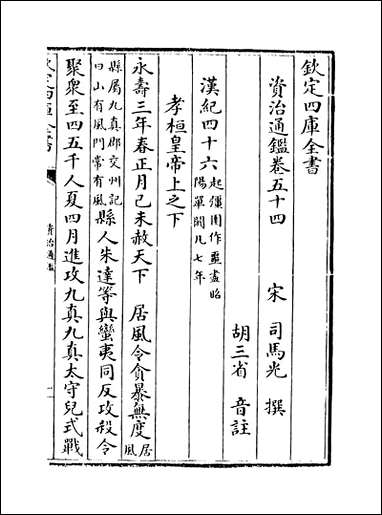 欽定四庫全書
資治通鑑卷五十四
宋 司馬光 撰
胡三省 音註
漢紀四十六起彊圉作噩盡昭陽單閼凡七年
孝桓皇帝上之下
永壽三年春正月己未赦天下 居風令貪暴無度居風
縣屬九真郡交州記曰山有風門常有風縣人朱達等與蠻夷同反攻殺令
聚衆至四五千人夏四月進攻九真九真太守兒式戰
欽定四庫全書
資治通鑑